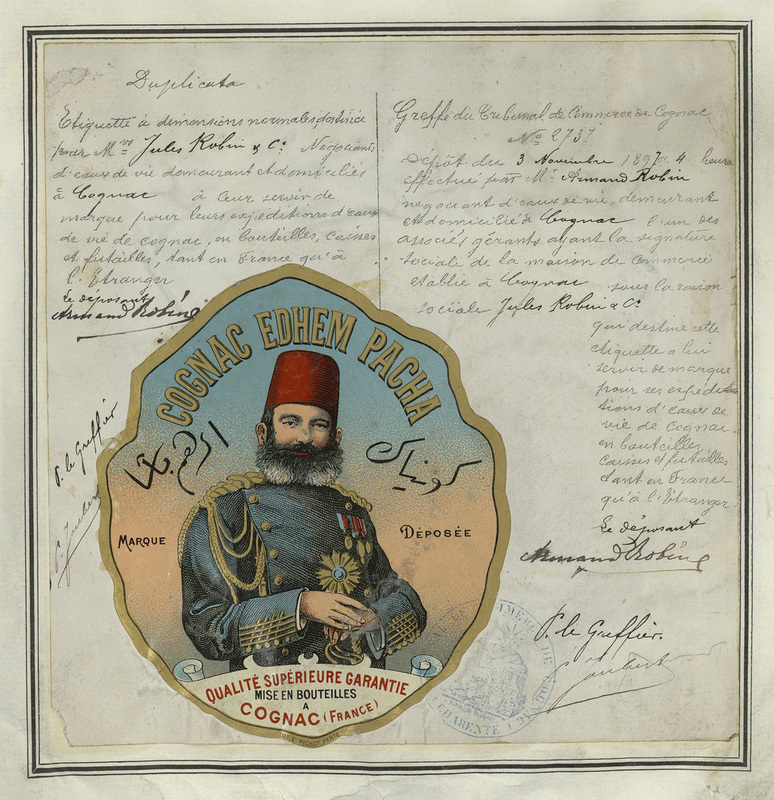 Duplicata
Etiquette à dimensions normales destinée
pour Mrs Jules Robin & Co. Négociants
d'eaux de vie demeurant et domiciliés
à Cognac à leur servir de
marque pour leurs expéditions d'eaux
de vie de cognac, en bouteilles, caisses
et futailles, tant en France qu'à
l'Etranger
Le déposant
Armand Robin
P. le Greffier
Greffe du Tribunal de Commerce de Cognac
No 2737
Dépôt du 3 Novembre 1897 à 4 heures
effectué par Mr Armand Robin
négociant d'eaux de vie, demeurant
et domicilié à Cognac l'un des
associés gérants ayant la signature
sociale de la maison de commerce
établie à Cognac sous la raison
sociale Jules Robin & Co.
qui destine cette
étiquette à lui
servir de marque
pour ses expédi
tions d'eaux de
vie de cognac
en bouteilles
caisses et futailles
tant en France
qu'à l'Etranger
Le déposant
Armand Robin
P. le Greffier.
Joubert
COGNAC EDHEM PACHA
ادهم پاشا
كونياك
MARQUE DÉPOSÉE
QUALITÉ SUPÉRIEURE GARANTIE
MISE EN BOUTEILLES
A
COGNAC (FRANCE)
COMMERCE DE
CHARENTE